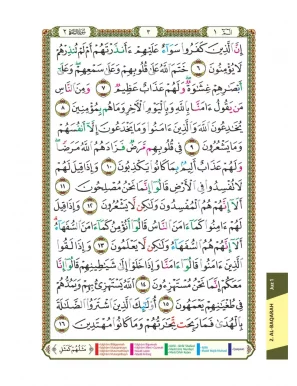 إِنَّ الَّذِينَ كَفَرُوا سَوَاءٌ عَلَيْهِمْ ءَأَنذَرْتَهُمْ أَمْ لَمْ تُنذِرْهُمْ
لَا يُؤْمِنُونَ ٦ خَتَمَ اللَّهُ عَلَىٰ قُلُوبِهِمْ وَعَلَىٰ سَمْعِهِمْ وَعَلَىٰ
أَبْصَٰرِهِمْ غِشَٰوَةٌ وَلَهُمْ عَذَابٌ عَظِيمٌ ٧ وَمِنَ النَّاسِ
مَن يَقُولُ ءَامَنَّا بِاللَّهِ وَبِالْيَوْمِ الْءَاخِرِ وَمَا هُم بِمُؤْمِنِينَ ٨
يُخَٰدِعُونَ اللَّهَ وَالَّذِينَ ءَامَنُوا وَمَا يَخْدَعُونَ إِلَّا أَنفُسَهُمْ
وَمَا يَشْعُرُونَ ٩ فِي قُلُوبِهِم مَّرَضٌ فَزَادَهُمُ اللَّهُ مَرَضًا
وَلَهُمْ عَذَابٌ أَلِيمٌ بِمَا كَانُوا يَكْذِبُونَ ١٠ وَإِذَا قِيلَ لَهُمْ
لَا تُفْسِدُوا فِي الْأَرْضِ قَالُوا إِنَّمَا نَحْنُ مُصْلِحُونَ ١١
أَلَا إِنَّهُمْ هُمُ الْمُفْسِدُونَ وَلَٰكِن لَّا يَشْعُرُونَ ١٢ وَإِذَا قِيلَ
لَهُمْ ءَامِنُوا كَمَا ءَامَنَ النَّاسُ قَالُوا أَنُؤْمِنُ كَمَا ءَامَنَ السُّفَهَاءُ
أَلَا إِنَّهُمْ هُمُ السُّفَهَاءُ وَلَٰكِن لَّا يَعْلَمُونَ ١٣ وَإِذَا لَقُوا
الَّذِينَ ءَامَنُوا قَالُوا ءَامَنَّا وَإِذَا خَلَوْا إِلَىٰ شَيَٰطِينِهِمْ قَالُوا إِنَّا
مَعَكُمْ إِنَّمَا نَحْنُ مُسْتَهْزِءُونَ ١٤ اللَّهُ يَسْتَهْزِئُ بِهِمْ وَيَمُدُّهُمْ
فِي طُغْيَٰنِهِمْ يَعْمَهُونَ ١٥ أُولَٰئِكَ الَّذِينَ اشْتَرَوُا الضَّلَٰلَةَ
بِالْهُدَىٰ فَمَا رَبِحَت تِّجَٰرَتُهُمْ وَمَا كَانُوا مُهْتَدِينَ ١٦
Juz 1
2. AL-BAQARAH